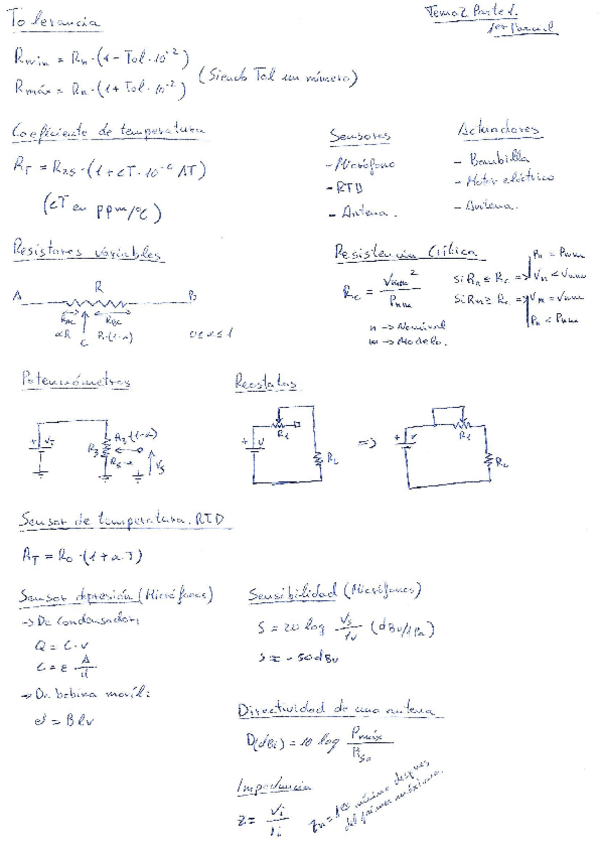 Tema 2 Parte 1.
1er Parcial
Tolerancia
Rmin = Rn·(1 - Tol·10^-2)
Rmáx = Rn·(1 + Tol·10^-2)
(Siendo Tol un número)
Coeficiente de temperatura
RT = R25·(1 + cT·10^-6 ΔT)
(cT en ppm/ºC)
Sensores
- Micrófono
- RTD
- Antena.
Actuadores
- Bombilla
- Motor eléctrico
- Antena.
Resistores variables
A R B
RAC RBC
αR C R·(1-α) 0≤α≤1
Resistencia Crítica
Rc = Vnm² / Pnm
Si Rn ≤ Rc => Pn = Pnm
Vn < Vnm
Si Rn ≥ Rc => Vn = Vnm
Pn < Pnm
n -> Nominal
m -> Modelo.
Potenciómetros
Reostatos
+ + V R1 => + V R1
Sensor de temperatura. RTD
RT = R0·(1 + α·T)
Sensor de presión (Micrófonos)
-> De Condensador:
Q = C·v
C = ε·A/d
-> De bobina movil:
e = Blv
Sensibilidad (Micrófonos)
S = 20 log (dBv/1Pa)
S = -50dBv
Directividad de una antena
D(dBi) = 10 log Pmáx
Impedancia
Z = Vi / Ii
mínimo despues
del primer máximo.